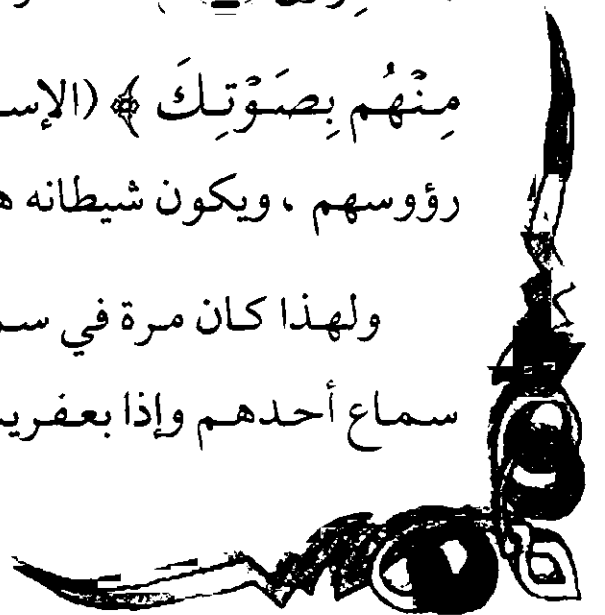 مِنْهُم بِصَوْتِكَ ﴾ (الإس
رؤوسهم ، ويكون شيطانه ه
ولهذا كان مرة في سم
سماع أحدهم وإذا بعفريت